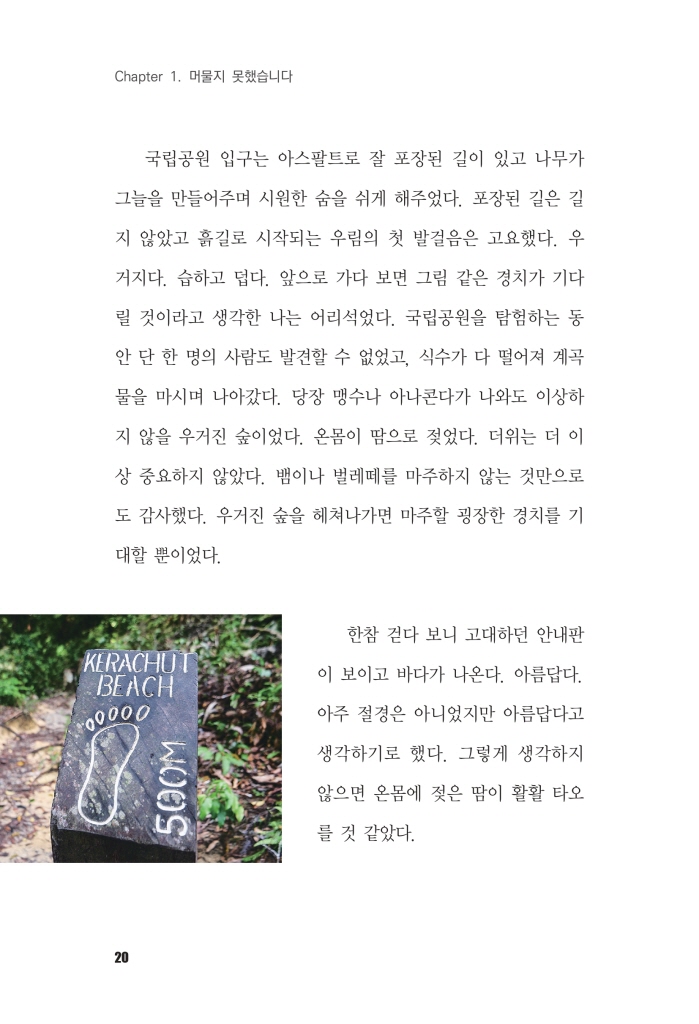 Chapter 1. 머물지 못했습니다
국립공원 입구는 아스팔트로 잘 포장된 길이 있고 나무가
그늘을 만들어주며 시원한 숨을 쉬게 해주었다. 포장된 길은 길
지 않았고 흙길로 시작되는 우림의 첫 발걸음은 고요했다. 우
거지다. 습하고 덥다. 앞으로 가다 보면 그림 같은 경치가 기다
릴 것이라고 생각한 나는 어리석었다. 국립공원을 탐험하는 동
안 단 한 명의 사람도 발견할 수 없었고, 식수가 다 떨어져 계곡
물을 마시며 나아갔다. 당장 맹수나 아나콘다가 나와도 이상하
지 않을 우거진 숲이었다. 온몸이 땀으로 젖었다. 더위는 더 이
상 중요하지 않았다. 뱀이나 벌레떼를 마주하지 않는 것만으로
도 감사했다. 우거진 숲을 헤쳐나가면 마주할 굉장한 경치를 기
대할 뿐이었다.
KERACHUT
BEACH
500M
한참 걷다 보니 고대하던 안내판
이 보이고 바다가 나온다. 아름답다.
아주 절경은 아니었지만 아름답다고
생각하기로 했다. 그렇게 생각하지
않으면 온몸에 젖은 땀이 활활 타오
를 것 같았다.
20